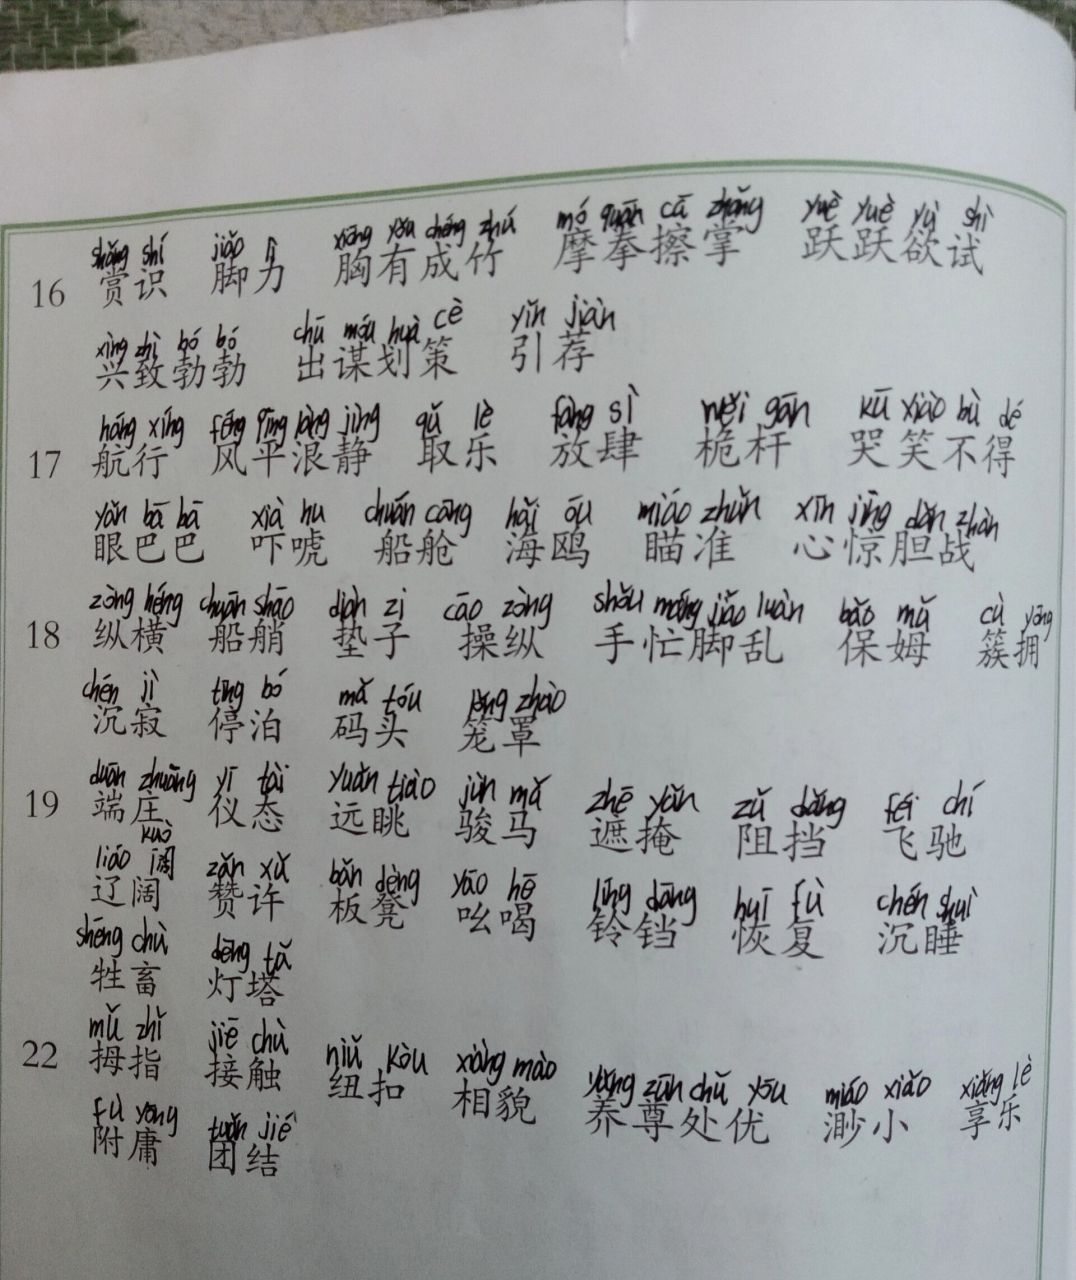 shǎng shí jiǎo lì xiōng yǒu chéng zhú mó quán cā zhǎng yuè yuè yù shì
16 赏识 脚力 胸有成竹 摩拳擦掌 跃跃欲试
xìng zhì bó bó chū móu huà cè yǐn jiàn
兴致勃勃 出谋划策 引荐
háng xíng fēng píng làng jìng qǔ lè fàng sì wéi gān kū xiào bù dé
17 航行 风平浪静 取乐 放肆 桅杆 哭笑不得
yǎn bā bā xià hu chuán cāng hǎi ōu miáo zhǔn xīn jīng dǎn zhàn
眼巴巴 吓唬 船舱 海鸥 瞄准 心惊胆战
zòng héng chuán shāo diàn zi cāo zòng shǒu máng jiǎo luàn bǎo mǔ cù yōng
18 纵横 船艄 垫子 操纵 手忙脚乱 保姆 簇拥
chén jì tíng bó mǎ tóu lǒng zhào
沉寂 停泊 码头 笼罩
duān zhuāng yí tài yuǎn tiào jùn mǎ zhē yǎn zǔ dǎng fēi chí
19 端庄 仪态 远眺 骏马 遮掩 阻挡 飞驰
liáo kuò 阔 zàn xǔ bǎn dèng yāo hē líng dāng huī fù chén shuì
辽阔 赞许 板凳 吆喝 铃铛 恢复 沉睡
shēng chù dēng tǎ
牲畜 灯塔
mǔ zhǐ jiē chù niǔ kòu xiàng mào yǎng zūn chǔ yōu miǎo xiǎo xiǎng lè
22 拇指 接触 纽扣 相貌 养尊处优 渺小 享乐
fù yōng tuán jié
附庸 团结